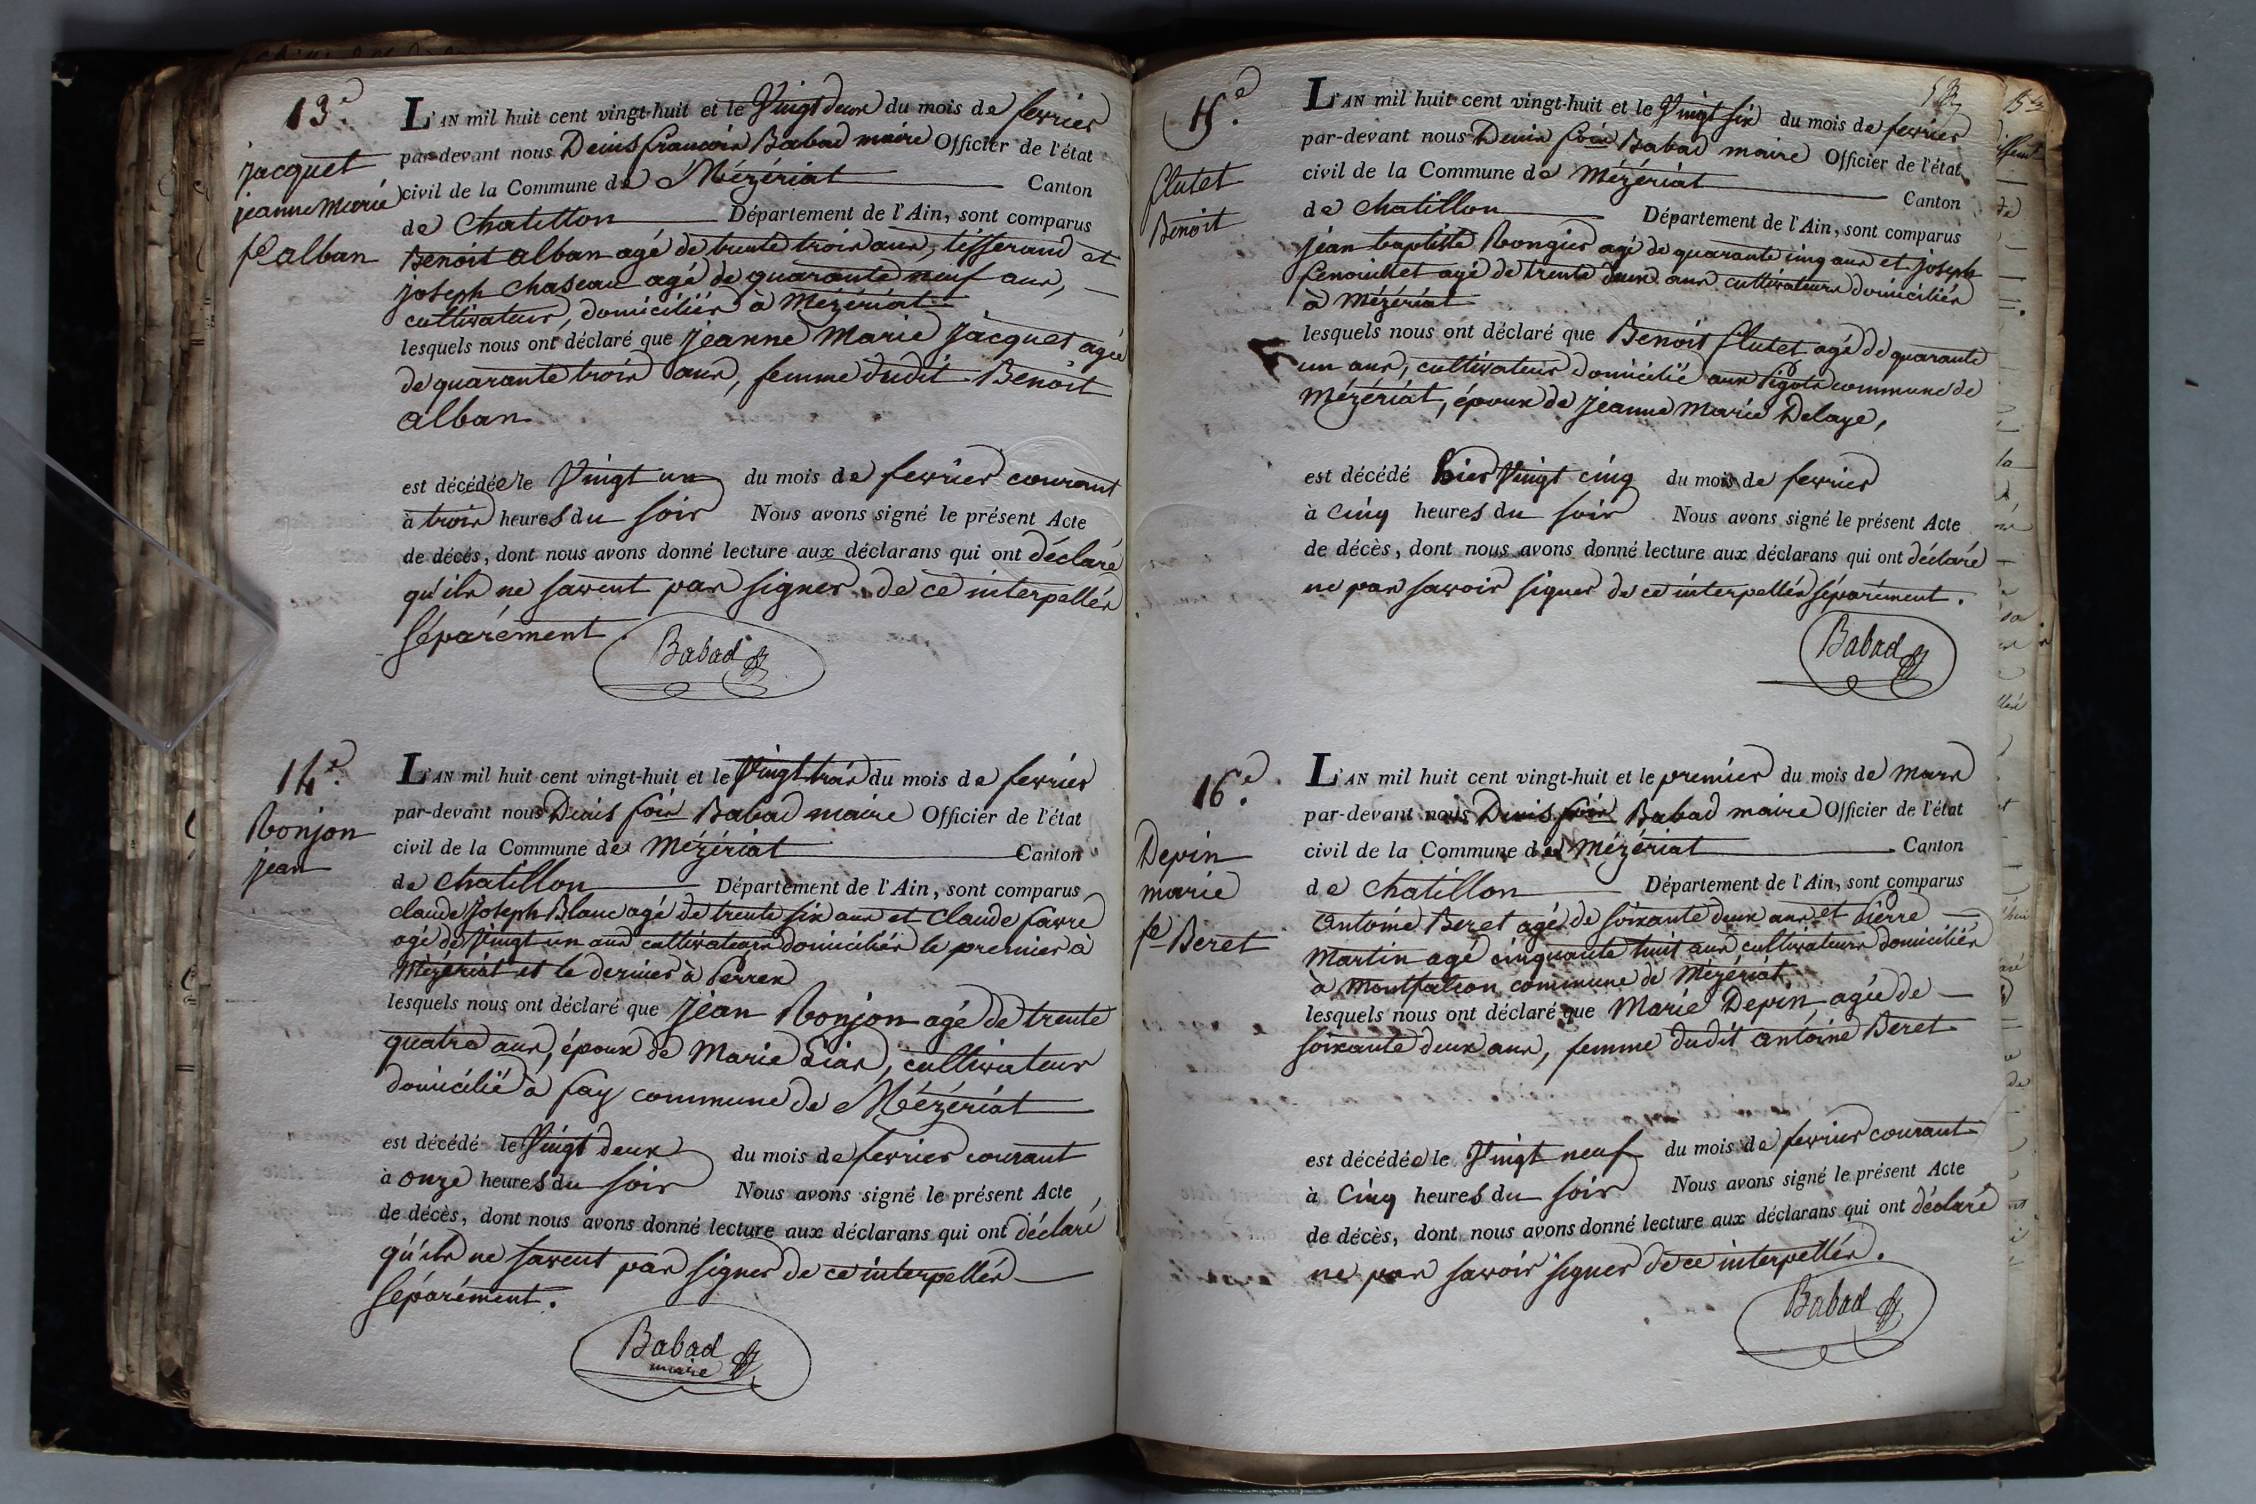 13.e
jacquet
jeanne Marie
fe alban
L'AN mil huit cent vingt-huit et le Vingt deux du mois de fevrier
par-devant nous Denis francois Babad maire Officier de l'état
civil de la Commune de Mézériat Canton
de Chatillon Département de l'Ain, sont comparus
Benoit alban agé de trente trois ans, tisserand et
joseph chaseau agé de quarante neuf ans,
cultivateur, domiciliés à Mezériat
lesquels nous ont déclaré que jeanne Marie jacquet agée
de quarante trois ans, femme dudit Benoit
alban
est décédée le Vingt un du mois de fevrier courant
à trois heures du soir Nous avons signé le présent Acte
de décès, dont nous avons donné lecture aux déclarans qui ont déclaré
qu'ils ne savent pas signer de ce interpellés
séparément.
Babad
14.e
Bonjon
jean
L'AN mil huit cent vingt-huit et le Vingt trois du mois de fevrier
par-devant nous Denis fois Babad maire Officier de l'état
civil de la Commune de Mézériat Canton
de Chatillon Département de l'Ain, sont comparus
claude joseph Blanc agé de trente six ans et Claude favre
agé de vingt un ans cultivateurs domiciliés le premier à
Mézériat et le dernier à Perrex
lesquels nous ont déclaré que jean Bonjon agé de trente
quatre ans, époux de Marie , cultivateur
domicilié à fay commune de Mézériat
est décédé le Vingt deux du mois de fevrier courant
à onze heures du soir Nous avons signé le présent Acte
de décès, dont nous avons donné lecture aux déclarans qui ont déclaré
qu'ils ne savent pas signer de ce interpellés
séparément.
Babad
maire
15.e
flutet
Benoit
L'AN mil huit cent vingt-huit et le Vingt six du mois de fevrier
par-devant nous Denis fois Babad maire Officier de l'état
civil de la Commune de Mézériat Canton
de chatillon Département de l'Ain, sont comparus
jean baptiste Rongier agé de quarante cinq ans et joseph
agé de trente deux ans cultivateurs domiciliés
à Mézériat
lesquels nous ont déclaré que Benoit flutet agé de quarante
un ans, cultivateur domicilié aux Pigots commune de
Mézériat, époux de jeanne Marie Delaye,
est décédé hier Vingt cinq du mois de fevrier
à cinq heures du soir Nous avons signé le présent Acte
de décès, dont nous avons donné lecture aux déclarans qui ont déclaré
ne pas savoir signer de ce interpellés séparément.
Babad
16.e
Depin
marie
fe Beret
L'AN mil huit cent vingt-huit et le premier du mois de mars
par-devant nous Denis fois Babad maire Officier de l'état
civil de la Commune de Mézériat Canton
de chatillon Département de l'Ain, sont comparus
Antoine Beret agé de soixante deux ans et Pierre
Martin agé cinquante huit ans cultivateurs domiciliés
à Montfalcon commune de Mézériat
lesquels nous ont déclaré que Marie Depin agée de
soixante deux ans, femme dudit antoine Beret
est décédée le Vingt neuf du mois de fevrier courant
à Cinq heures du soir Nous avons signé le présent Acte
de décès, dont nous avons donné lecture aux déclarans qui ont déclaré
ne pas savoir signer de ce interpellés.
Babad